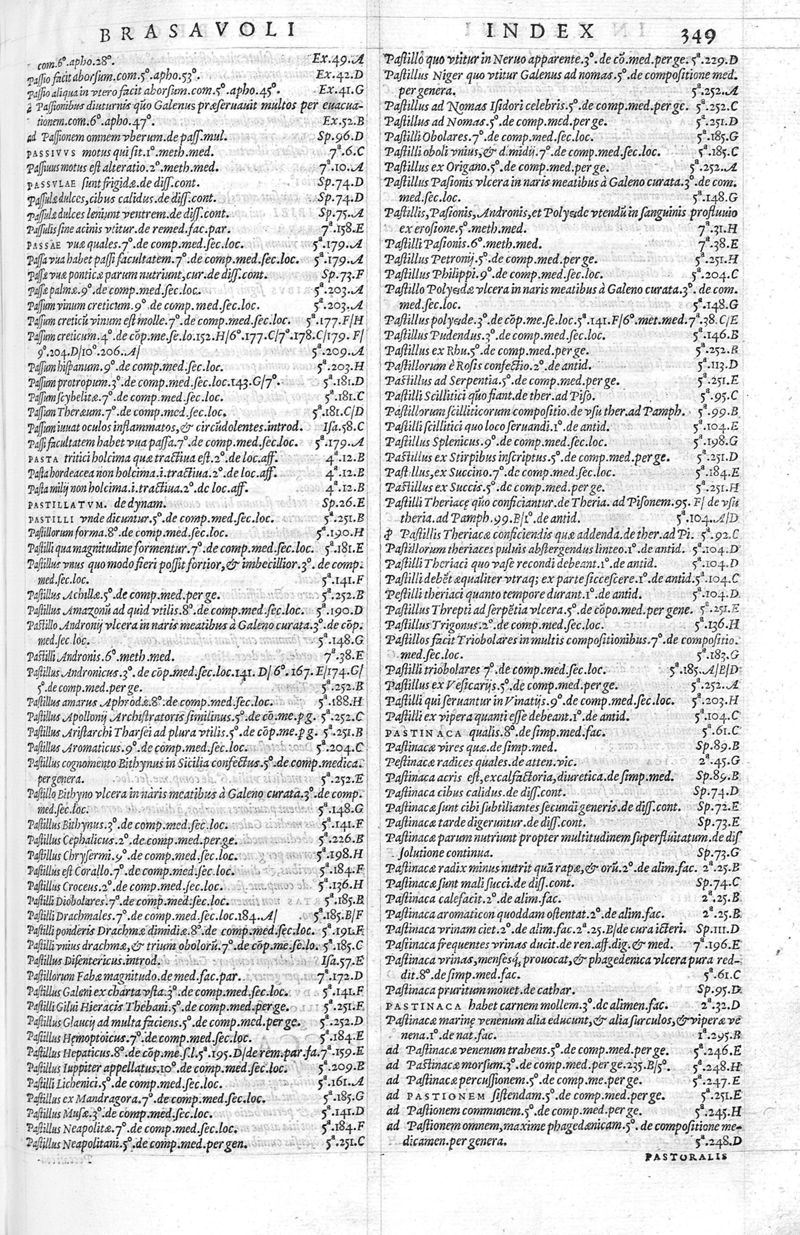 BRASAVOLI
INDEX 349
com.6°.apho.28°. Ex.49.A
Passio facit aborsum.com.5°.apho.53°. Ex.42.D
Passio aliqua in vtero facit aborsum.com.5°.apho.45°. Ex.41.G
à Passionibus diuturnis quō Galenus præseruauit multos per euacua-
tionem.com.6°.apho.47°. Ex.52.B
ad Passionem omnem vberum.de pass.mul. Sp.96.D
PASSIVVS motus qui sit.1°.meth.med. 7ª.6.C
Passiuus motus est alteratio.2°.meth.med. 7ª.10.A
PASSVLAE sunt frigidæ.de diss.cont. Sp.74.D
Passulæ dulces, cibus calidus.de diss.cont. Sp.74.D
Passulæ dulces leniunt ventrem.de diss.cont. Sp.75.A
Passulis sine acinis vitur.de remed.fac.par. 7ª.158.E
PASSAE vuæ quales.7°.de comp.med.sec.loc. 5ª.179.A
Passa vua habet passi facultatem.7°.de comp.med.sec.loc. 5ª.179.A
Passæ vuæ ponticæ parum nutriunt,cur.de diss.cont. Sp.73.F
Passæ palmæ.9°.de comp.med.sec.loc. 5ª.203.A
Passum vinum creticum.9°.de comp.med.sec.loc. 5ª.203.A
Passum creticū vinum est molle.7°.de comp.med.sec.loc. 5ª.177.F/H
Passum creticum.4°.de cōp.me.se.lo.152.H/6°.177.C/7°.178.C/179. F/
9°.204.D/10°.206.A/ 5ª.209.A
Passum hispanum.9°.de comp.med.sec.loc. 5ª.203.H
Passum protropum.3°.de comp.med.sec.loc.143.G/7°. 5ª.181.D
Passum scybelitæ.7°.de comp.med.sec.loc. 5ª.181.C
Passum Theræum.7°.de comp.med.sec.loc. 5ª.181.C/D
Passum iuuat oculos inflammatos,& circūdolentes.introd. Isa.58.C
Passi facultatem habet vua passa.7°.de comp.med.sec.loc. 5ª.179.A
PASTA tritici holcima quæ tractiua est.2°.de loc.aff. 4ª.12.B
Pasta hordeacea non holcima.i.tractiua.2°.de loc.aff. 4ª.12.B
Pasta milij non holcima.i.tractiua.2°.dc loc.aff. 4ª.12.B
PASTILLATVM. de dynam. Sp.26.E
PASTILLI vnde dicuntur.5°.de comp.med.sec.loc. 5ª.251.B
Pastillorum forma.8°.de comp.med.sec.loc. 5ª.190.H
Pastilli qua magnitudine formentur.7°.de comp.med.sec.loc. 5ª.181.E
Pastillus vnus quo modo fieri possit fortior,& imbecillior.3°.de comp.
med.sec.loc. 5ª.141.F
Pastillus Achillæ.5°.de comp.med.per ge. 5ª.252.B
Pastillus Amazonū ad quid vtilis.8°.de comp.med.sec.loc. 5ª.190.D
Pastillo Andronij vlcera in naris meatibus à Galeno curata.3°.de cōp.
med.sec.loc. 5ª.148.G
Pastilli Andronis.6°.meth.med. 7ª.38.E
Pastillus Andronicus.3°.de cōp.med.sec.loc.141.D/6°.167.E/174.G/
5°.de comp.med.per ge. 5ª.252.B
Pastillus amarus Aphrodæ.8°.de comp.med.sec.loc. 5ª.188.H
Pastillus Apollonij Archistratoris similinus.5°.de cō.me.p g. 5ª.252.C
Pastillus Aristarchi Tharsei ad plura vtilis.5°.de cōp.me.p g. 5ª.251.B
Pastillus Aromaticus.9°.de comp.med.sec.loc. 5ª.204.C
Pastillus cognomento Bithynus in Sicilia confectus.5°.de comp.medica.
per genera. 5ª.252.E
Pastillo Bithyno vlcera in naris meatibus à Galeno curata.3°.de comp.
med.sec.loc. 5ª.148.G
Pastillus Bithynus.3°.de comp.med.sec.loc. 5ª.141.F
Pastillus Cephalicus.2°.de comp.med.per ge. 5ª.226.B
Pastillus Chrysermi.9°.de comp.med.sec.loc. 5ª.198.H
Pastillus est Corallo.7°.de comp.med.sec.loc. 5ª.184.F
Pastillus Croceus.2°.de comp.med.sec.loc. 5ª.136.H
Pastilli Diobolares.7°.de comp.med.sec.loc. 5ª.185.B
Pastilli Drachmales.7°.de comp.med.sec.loc.184.A/ 5ª.185.B/F
Pastilli ponderis Drachmæ dimidiæ.8°.de comp.med.sec.loc. 5ª.191.F
Pastilli vnius drachmæ,& trium obolorū.7°.de cōp.me.se.lo. 5ª.185.C
Pastillus Disentericus.introd. Isa.57.E
Pastillorum Fabæ magnitudo.de med.fac.par. 7ª.172.D
Pastillus Galeni ex charta vsta.3°.de comp.med.sec.loc. 5ª.141.F
Pastilli Gilui Hieracis Thebani.5°.de comp.med.per ge. 5ª.251.F
Pastillus Glaucij ad multa faciens.5°.de comp.med.per ge. 5ª.252.D
Pastillus Hemoptoicus.7°.de comp.med.sec.loc. 5ª.184.E
Pastillus Hepaticus.8°.de cōp.me.s.l.5ª.195.D/de rem.par.fa.7ª.159.E
Pastillus Iuppiter appellatus.10°.de comp.med.sec.loc. 5ª.209.B
Pastilli Lichenici.5°.de comp.med.sec.loc. 5ª.161.A
Pastillus ex Mandragora.7°.de comp.med.sec.loc. 5ª.185.G
Pastillus Musæ.3°.de comp.med.sec.loc. 5ª.141.D
Pastillus Neapolitæ.7°.de comp.med.sec.loc. 5ª.184.F
Pastillus Neapolitani.5°.de comp.med.per gen. 5ª.251.C
Pastillō quo vtitur in Neruo apparente.3°.de cō.med.per ge. 5ª.229.D
Pastillus Niger quo vtitur Galenus ad nomas.5°.de compositione med.
per genera. 5ª.252.A
Pastillus ad Nomas Isidori celebris.5°.de comp.med.per ge. 5ª.252.C
Pastillus ad Nomas.5°.de comp.med.per ge. 5ª.251.D
Pastilli Obolares.7°.de comp.med.sec.loc. 5ª.185.G
Pastilli oboli vnius,& dimidij.7°.de comp.med.sec.loc. 5ª.185.C
Pastillus ex Origano.5°.de comp.med.per ge. 5ª.252.A
Pastillus Pasionis vlcera in naris meatibus à Galeno curata.3°.de com.
med.sec.loc. 5ª.148.G
Pastillis,Pasionis,Andronis,et Polyædæ vtendū in sanguinis profluuio
ex erosione.5°.meth.med. 7ª.31.H
Pastilli Pasionis.6°.meth.med. 7ª.38.E
Pastillus Petronij.5°.de comp.med.per ge. 5ª.251.H
Pastillus Philippi.9°.de comp.med.sec.loc. 5ª.204.C
Pastillo Polyædæ vlcera in naris meatibus à Galeno curata.3°.de com.
med.sec.loc. 5ª.148.G
Pastillus polyædæ.3°.de cōp.me.se.loc.5ª.141.F/6°.met.med.7ª.38.C/E
Pastillus Pudendus.3°.de comp.med.sec.loc. 5ª.146.B
Pastillus ex Rhu.5°.de comp.med.per ge. 5ª.252.B
Pastillorum è Rosis confectio.2°.de antid. 5ª.113.D
Pastillus ad Serpentia.5°.de comp.med.per ge. 5ª.251.E
Pastilli Scillitici quō fiant.de ther.ad Piso. 5ª.95.C
Pastillorum scilliticorum compositio.de vsu ther.ad Pamph. 5ª.99.B
Pastilli scillitici quo loco seruandi.1°.de antid. 5ª.104.E
Pastillus Splenicus.9°.de comp.med.sec.loc. 5ª.198.G
Pastillus ex Stirpibus inscriptus.5°.de comp.med.per ge. 5ª.251.D
Pastillus,ex Succino.7°.de comp.med.sec.loc. 5ª.184.E
Pastillus ex Succis.5°.de comp.med.per ge. 5ª.251.H
Pastilli Theriacę quō conficiantur.de Theria.ad Pisonem.95.F/ de vsu
theria.ad Pamph.99.B/1°.de antid. 5ª.104.A/D
ꝓ Pastillis Theriacæ conficiendis quæ addenda.de ther.ad Pi. 5ª.92.C
Pastillorum theriaces puluis abstergendus linteo.1°.de antid. 5ª.104.D
Pastilli Theriaci quo vase recondi debeant.1°.de antid. 5ª.104.D
Pastilli debēt æqualiter vtraq; ex parte siccescere.1°.de antid.5ª.104.C
Pastilli theriaci quanto tempore durant.1°.de antid. 5ª.104.D
Pastillus Threpti ad serpētia vlcera.5°.de cōpo.med.per gene. 5ª.251.E
Pastillus Trigonus.2°.de comp.med.sec.loc. 5ª.136.H
Pastillos facit Triobolares in multis compositionibus.7°.de compositio.
med.sec.loc. 5ª.183.G
Pastilli triobolares 7°.de comp.med.sec.loc. 5ª.185.A/E/D
Pastillus ex Vesicarijs.5°.de comp.med.per ge. 5ª.252.A
Pastilli qui seruantur in Vinatijs.9°.de comp.med.sec.loc. 5ª.203.H
Pastilli ex vipera quanti esse debeant.1°.de antid. 5ª.104.C
PASTINACA qualis.8°.de simp.med.fac. 5ª.61.C
Pastinacæ vires quæ.de simp.med. Sp.89.B
Pestinacæ radices quales.de atten.vic. 2ª.45.G
Pastinaca acris est,excalfactoria,diuretica.de simp.med. Sp.89.B
Pastinaca cibus calidus.de diss.cont. Sp.74.D
Pastinacæ sunt cibi subtiliantes secundi generis.de diss.cont. Sp.72.E
Pastinacæ tarde digeruntur.de diss.cont. Sp.73.E
Pastinacæ parum nutriunt propter multitudinem superfluitatum.de dis
solutione continua. Sp.73.G
Pastinacæ radix minus nutrit quā rapæ,& orū.2°.de alim.fac. 2ª.25.B
Pastinacæ sunt mali succi.de diss.cont. Sp.74.C
Pastinaca calefacit.2°.de alim.fac. 2ª.25.B
Pastinaca aromaticon quoddam ostentat.2°.de alim.fac. 2ª.25.B
Pastinaca vrinam ciet.2°.de alim.fac.2ª.25.B/de cura icteri. Sp.111.D
Pastinaca frequentes vrinas ducit.de ren.aff.dig.& med. 7ª.196.E
Pastinaca vrinas,menses'q;,prouocat,& phagedenica vlcera pura red-
dit.8°.de simp.med.fac. 5ª.61.C
Pastinaca pruritum mouet.de cathar. Sp.95.D
PASTINACA habet carnem mollem.3°.de alimen.fac. 2ª.32.D
Pastinacæ marinę venenum alia educunt,& alia surculos,& viperæ ve
nena.1°.de nat.fac. 1ª.295.B
ad Pastinacæ venenum trahens.5°.de comp.med.per ge. 5ª.246.E
ad Pastinacæ morsum.3°.de comp.med.per ge.235.B/5°. 5ª.248.H
ad Pastinacæ percussionem.5°.de comp.me.per ge. 5ª.247.E
ad PASTIONEM sistendam.5°.de comp.med.per ge. 5ª.251.E
ad Pastionem communem.5°.de comp.med.per ge. 5ª.245.H
ad Pastionem omnem,maxime phagedænicam.5°.de compositione me-
dicamen.per genera. 5ª.248.D
PASTORALIS